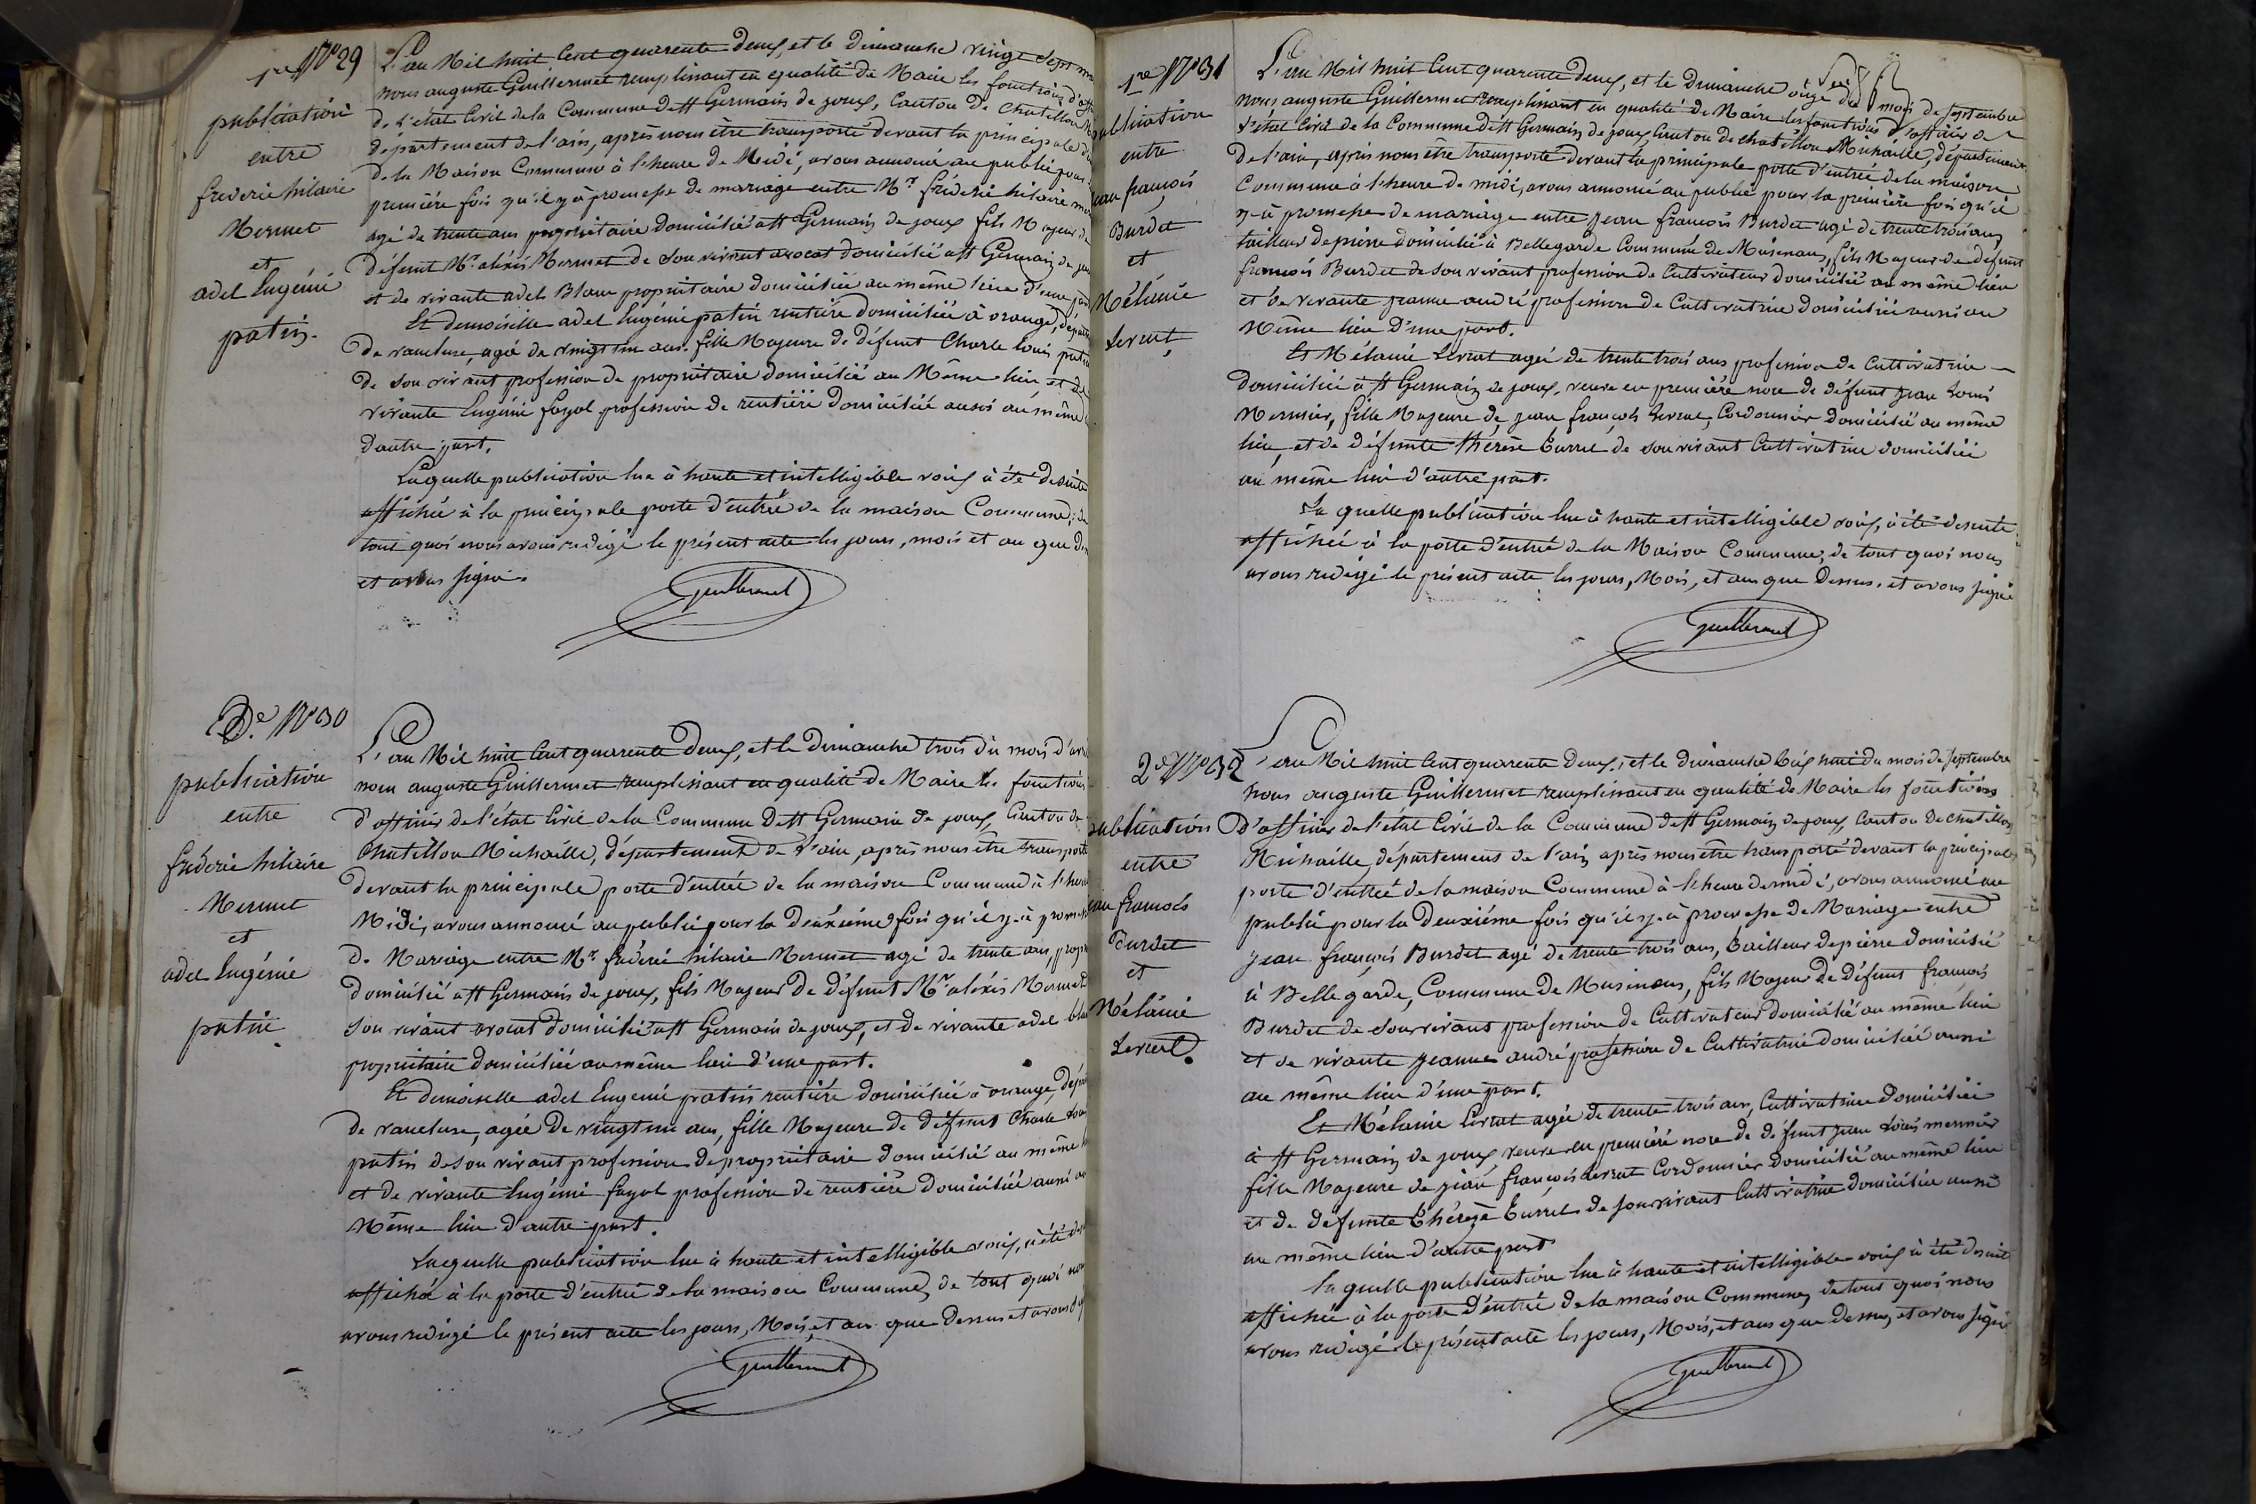 1re N° 29
publication
entre
frederic hilaire
Mermet
et
adel Eugénie
patin.
L'an Mil huit Cent quarente deux, et le dimanche vingt sept
nous auguste Guillermet remplissant en qualité de Maire les fonctions
de L'état Civil de la Commune de St Germain de joux, Canton de Chatillon
département de l'ain, après nous être transporté devant la principale
de la Maison Commune à l'heure de Midi, avons annoncé au public pour
première fois qu'il y à promesse de mariage entre Mr fréderic hilaire
agé de trente ans propriétaire domicilié a St Germain de joux fils Majeur de
défunt Mr. aléxis Mermet de Son vivant avocat domicilié a St Germain de
et de vivante adel Blanc propriétaire domiciliée au même lieu d'une
Et demoiselle adel Eugénie patin rentière domiciliée à orange,
de vaucluse, agée de vingt un ans. fille Majeure de Défunt Charle Louis
de Son vivant profession de propriétaire domicilié au Même lieu et de
vivante Eugénie fayol profession de rentière domiciliée aussi au même
d'autre part.
Laquelle publication lue à haute et intelligible voix à été de suite
affichée à la principale porte d'entrée de la maison Commune, de
tout quoi nous avons redigé le présent acte les jours, mois et an que
et avons signé.
Guillermet
2e. N° 30
publication
entre
fréderic hilaire
Mermet
et
adel Eugénie
patin.
L'an Mil huit Cent quarente Deux, et le Dimanche trois du mois
nous auguste Guillermet remplissant en qualité de Maire les fonctions
d'officier de l'état Civil de la Commune de St Germain de joux, Canton de
Chatillon Michaille, département de l'ain, après nous être transporté
devant la principale porte d'entrée de la maison Commune à l'heure
Midi, avons annoncé au public pour la Deuxième fois qu'il y à
de Mariage entre Mr fréderic hilaire Mermet agé de trente ans,
domicilié a St Germain de joux, fils Majeur de défunt Mr aléxis Mermet
Son vivant avocat domicilié a St Germain de joux, et de vivante adel
propriétaire domiciliée au même lieu d'une part.
Et demoiselle adel Eugénie patin rentière domiciliée à orange,
de vaucluse, agée de vingt un ans, fille Majeure de défunt Charle
patin de Son vivant profession de propriétaire domicilié au même
et de vivante Eugénie fayol profession de rentière domiciliée aussi au
Même lieu d'autre part.
Laquelle publication lue à haute et intelligible voix, à été
affichée à la porte d'entrée de la maison Commune, de tout quoi
avons redigé le présent acte les jours, Mois, et an que Dessus et avons
Guillermet
1re N° 31
publication
entre
jean françois
Burdet
et
Mélanie
Levrat
L'an Mil huit Cent quarente Deux, et le Dimanche onze du mois de Septembre
nous auguste Guillermet remplissant en qualité de Maire les fonctions d'officier de
l'état Civil de la Commune de St Germain de joux, Canton de Chatillon Michaille, département
de l'ain, après nous être transporté devant la principale porte d'entrée de la maison
Commune à l'heure de midi, avons annoncé au public pour la première fois qu'il
y à promesse de mariage entre jean françois Burdet agé de trente trois ans,
tailleur de pierre domicilié à Bellegarde Commune de Musinens, fils Majeur de défunt
françois Burdet de son vivant profession de Cultivateur domicilié au même lieu
et de vivante jeanne andré profession de Cultivatrice domiciliée aussi au
Même lieu d'une part.
Et Mélanie Levrat agée de trente trois ans profession de Cultivatrice
domiciliée à St Germain de joux, veuve en première noce de défunt jean Louis
Mermier, fille Majeure de jean françois Levrat, Cordonnier domicilié au même
lieu, et de défunte thérèse Burrel de son vivant Cultivatrice domiciliée
au même lieu d'autre part.
La quelle publication lue à haute et intelligible voix, à été de suite
affichée à la porte d'entrée de la Maison Commune, de tout quoi nous
avons redigé le présent acte les jours, Mois, et an que Dessus, et avons signé
Guillermet
2e N° 32
publication
entre
jean françois
Burdet
et
Mélanie
Levrat.
L'an Mil huit Cent quarente Deux, et le dimanche Dix huit du mois de Septembre
nous auguste Guillermet remplissant en qualité de Maire les fonctions
d'officier de l'état Civil de la Commune de St Germain de joux, Canton de Chatillon
Michaille, département de l'ain après nous être transporté devant la principale
porte d'entrée de la maison Commune à l'heure de midi, avons annoncé au
public pour la Deuxième fois qu'il y à promesse de Mariage entre
jean françois Burdet agé de trente trois ans, tailleur de pierre domicilié
à Bellegarde, Commune de Musinens, fils Majeur de défunt françois
Burdet de son vivant profession de Cultivateur domicilié au même lieu
et de vivante jeanne andré profession de Cultivatrice domiciliée aussi
au même lieu d'une part.
Et Mélanie Levrat agée de trente trois ans, Cultivatrice domiciliée
à St Germain de joux, veuve en première noce de défunt jean Louis mermier
fille Majeure de jean françois Levrat Cordonnier domicilié au même lieu
et de défunte thérèze Burrel de son vivant Cultivatrice domiciliée aussi
au même lieu d'autre part
La quelle publication lue à haute et intelligible voix à été de suite
affichée à la porte d'entrée de la maison Commune, de tout quoi nous
avons redigé le présent acte les jours, Mois, et an que dessus, et avons signé
Guillermet